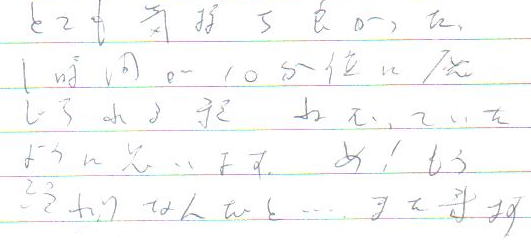 とても気持ち良かった。
1時間が10分位に感
じられる程 ねむっていた
ように思います。 あ！もう
終わりなんだと…… また来ます